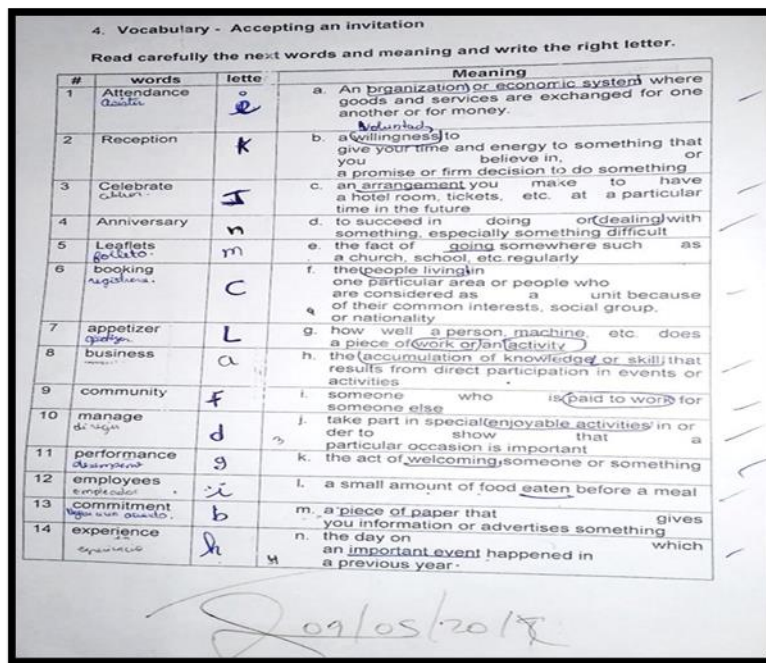 4. Vocabulary - Accepting an invitation
Read carefully the next words and meaning and write the right letter.
# words lette Meaning
1 Attendance e a. An organization or economic system where
asistir goods and services are exchanged for one
another or for money.
voluntad
2 Reception K b. a willingness to
give your time and energy to something that
you believe in, or
a promise or firm decision to do something
3 Celebrate J c. an arrangement you make to have
a hotel room, tickets, etc. at a particular
time in the future
4 Anniversary n d. to succeed in doing or dealing with
something, especially something difficult
5 Leaflets m e. the fact of going somewhere such as
folleto. a church, school, etc regularly
6 booking C f. the people living in
one particular area or people who
are considered as a unit because
of their common interests, social group,
or nationality
7 appetizer L g. how well a person, machine, etc. does
a piece of work or an activity
8 business a h. the accumulation of knowledge or skill that
results from direct participation in events or
activities
9 community f i. someone who is paid to work for
someone else
10 manage d j. take part in special enjoyable activities in or
der to show that a
particular occasion is important
11 performance g k. the act of welcoming someone or something
12 employees i l. a small amount of food eaten before a meal
empleados
13 commitment b m. a piece of paper that gives
you information or advertises something
14 experience h n. the day on which
an important event happened in
a previous year.
09/05/2018